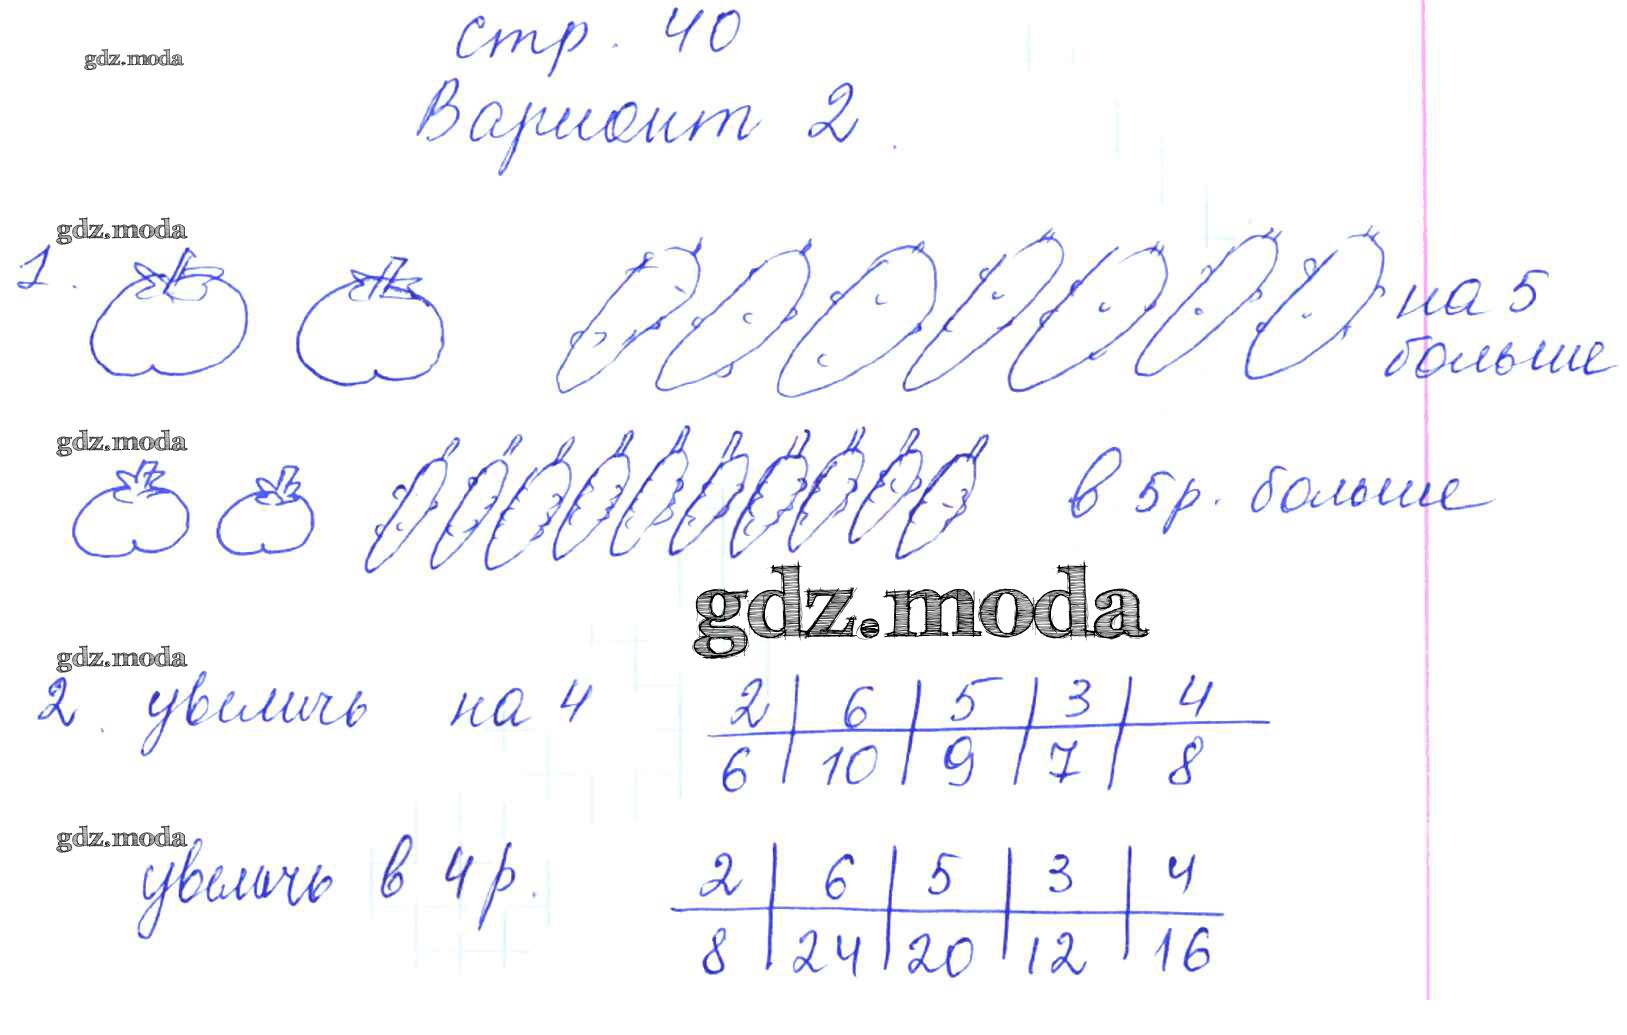 стр. 40
gdz.moda
Вариант 2.
gdz.moda
1.
на 5
больше
gdz.moda
в 5 р. больше
gdz.moda
gdz.moda
2. увеличь на 4
2 6 5 3 4
6 10 9 7 8
gdz.moda
увеличь в 4 р.
2 6 5 3 4
8 24 20 12 16